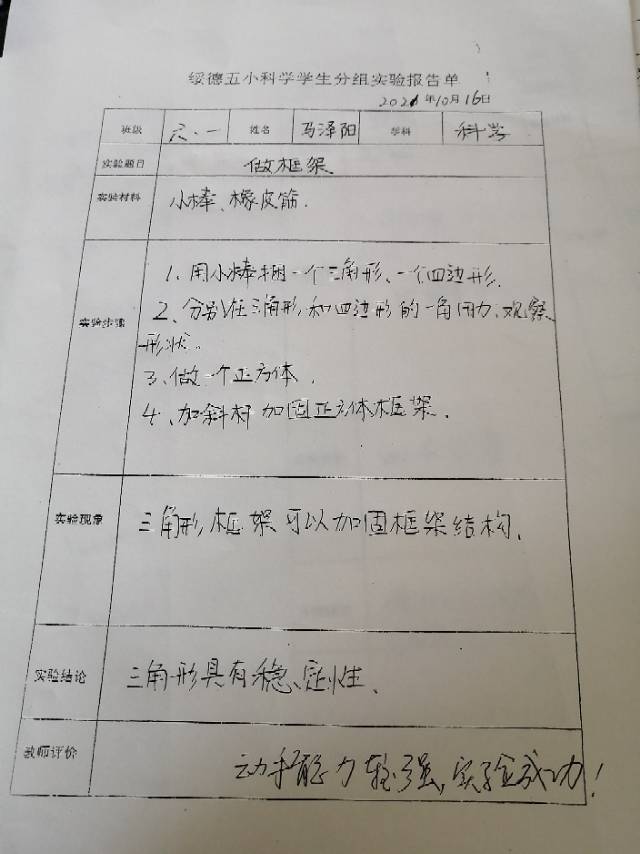 绥德五小科学学生分组实验报告单
2021年10月16日
班级 六.一 姓名 马泽阳 学科 科学
实验题目 做框架
实验材料 小棒、橡皮筋.
实验步骤
1、用小棒捆一个三角形、一个四边形.
2、分别在三角形和四边形的一角用力、观察
形状。
3、做一个正方体.
4、加斜材加固正方体框架.
实验现象 三角形框架可以加固框架结构.
实验结论 三角形具有稳定性、
教师评价 动手能力较强,实验成功!